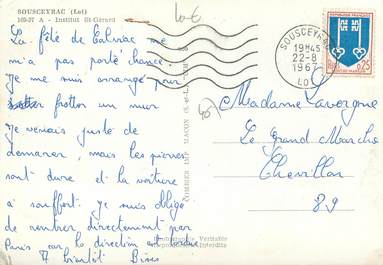 SOUSCEYRAC (Lot)
169-27 A - Institut St-Gérard
La fête de
m'a pas porté chance.
Je me suis arrangé pour
frotter un mur
Je venais juste de
démarrer, mais les pierres
sont dure et la voiture
a souffert. Je suis obligé
de rentrer directement par
Paris car la direction est
A bientôt. Bises
COMBIER IMP MACON
Photographie Véritable
Reproduction Interdite
10€
SOUSCEYRAC
19H45
22-8
196
LOT
0,25
Madame Lavergne
Le Grand Marchis
Chevillon
89